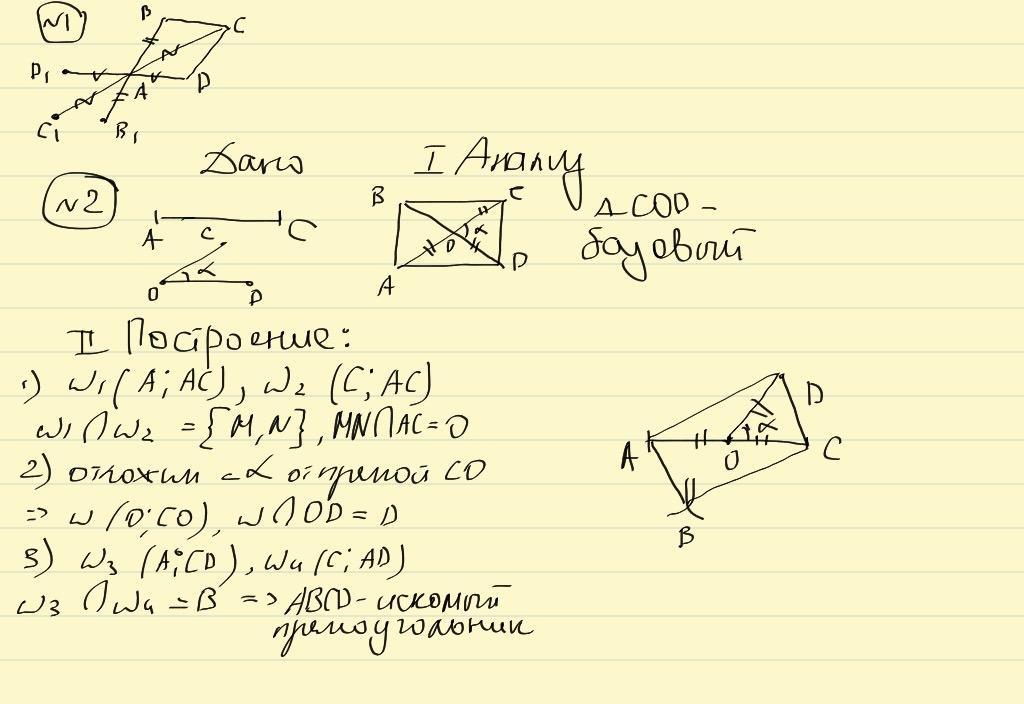 №1
B
C
D₁
A
D
C₁
B₁
№2
Дано
I Анализ
A C
C
α
O D
B C
O α
A D
△COD -
базовый
II Построение:
1) ω₁(A; AC), ω₂ (C; AC)
ω₁∩ω₂ = {M,N}, MN∩AC=O
2) отложим ∠α от прямой CO
=> ω (O; CO), ω∩OD = D
3) ω₃ (A; CD), ω₄ (C; AD)
ω₃ ∩ω₄ = B => ABCD - искомый
прямоугольник
D
α
A O C
B